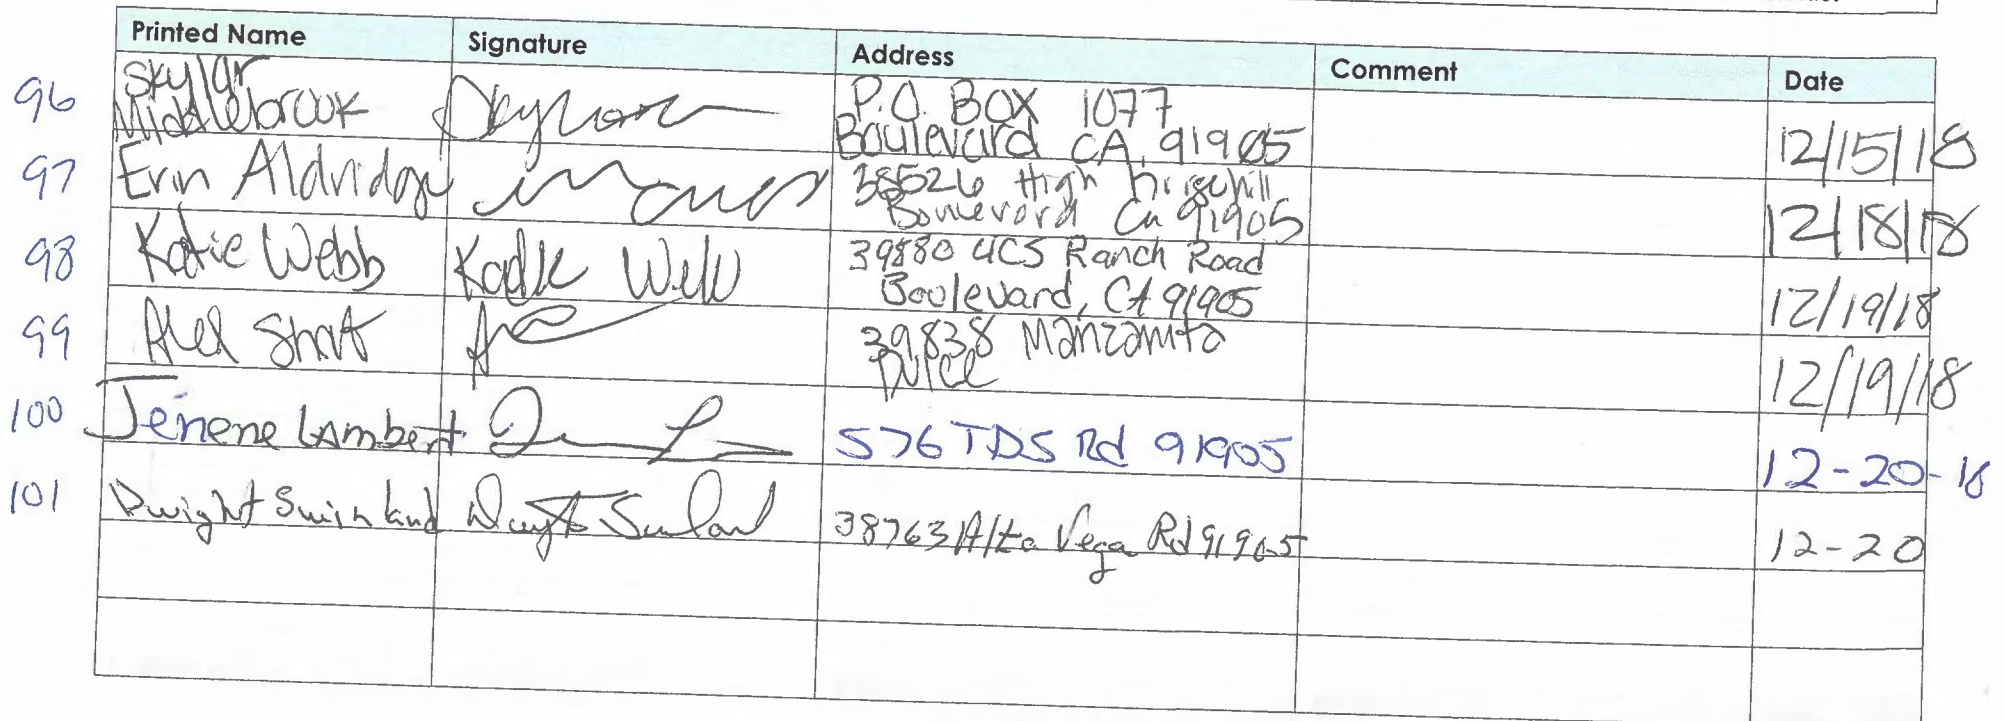 Printed Name Signature Address Comment Date
96 Skylar P.O. BOX 1077
Middlebrook Boulevard CA, 91905 12/15/18
97 Erin Aldridge 38526 High
Boulevard Ca 91905 12/18/18
98 Katie Webb Katie Webb 39880 Ranch Road
Boulevard, CA 91905 12/19/18
99 39838 Manzanita
12/19/18
100 Jenene Lambert 576 TDS Rd 91905 12-20-18
101 Dwight 38763 Alta Vega Rd 91905 12-20